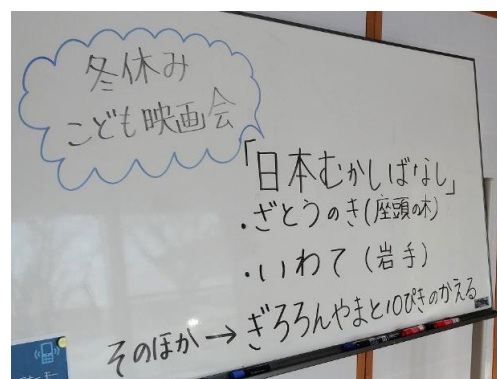 冬休み
こども映画会
「日本むかしばなし」
・ざとうのき(座頭の木)
・いわて(岩手)
そのほか→ぎろろんやまと10ぴきのかえる